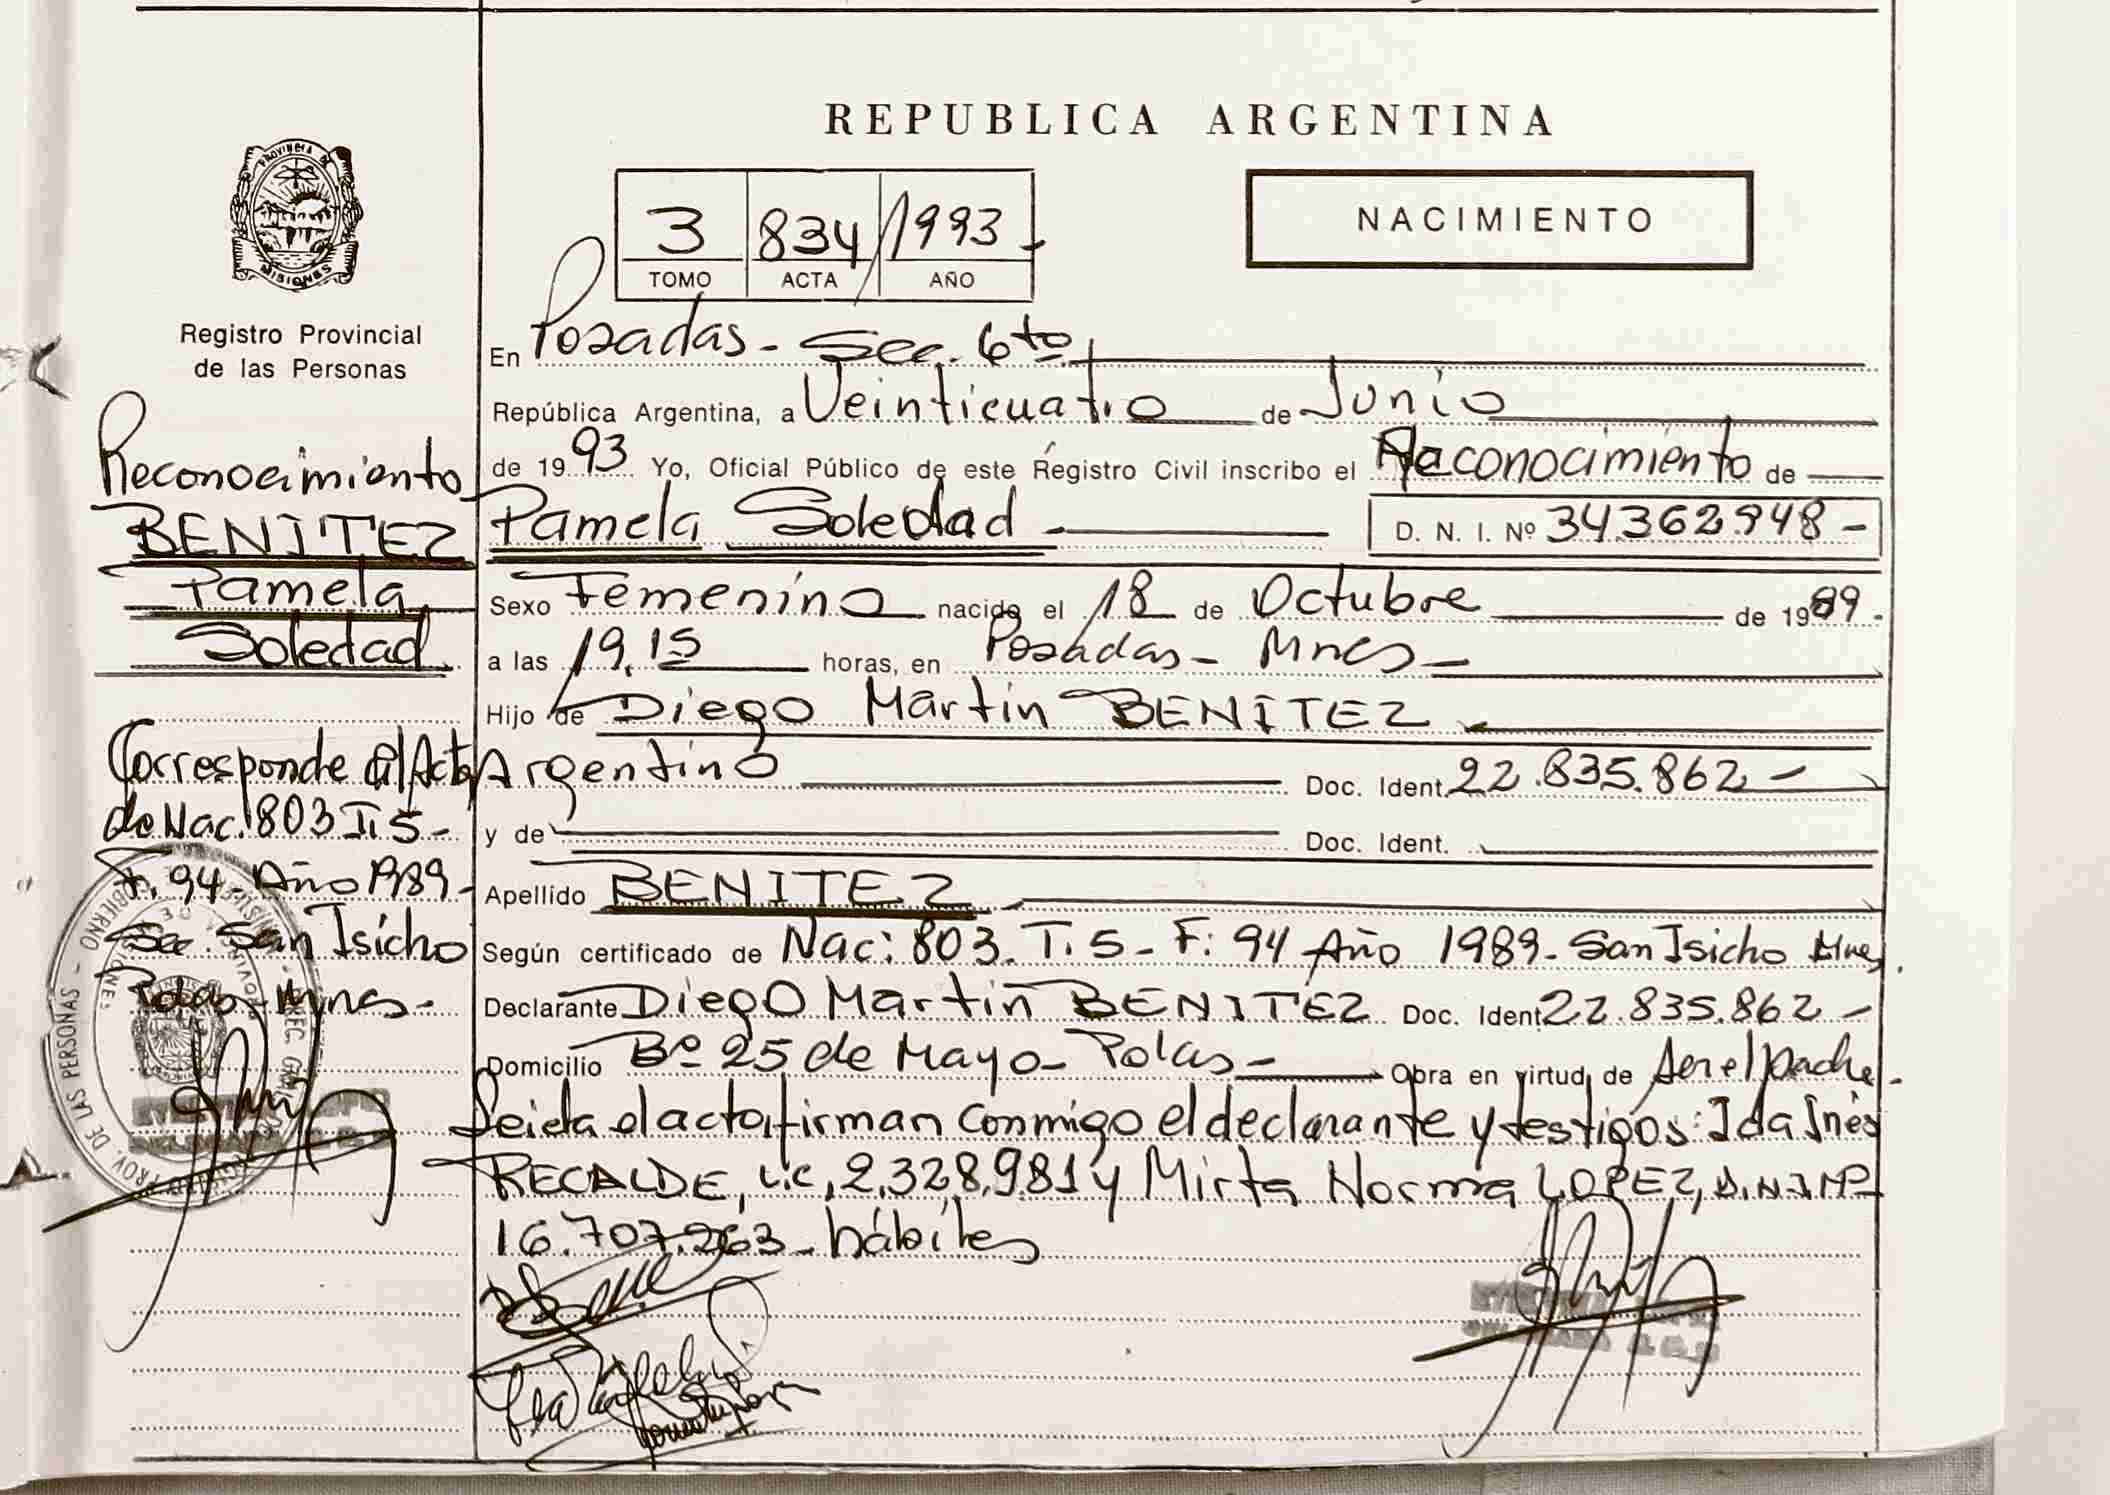 REPUBLICA ARGENTINA
PROVINCIA DE
MISIONES
Registro Provincial
de las Personas
3 834 1993 -
TOMO ACTA AÑO
NACIMIENTO
Reconocimiento
BENITEZ
Pamela
Soledad
Corresponde al Acta
de Nac. 803 T. 5 -
F. 94 - Año 1989 -
Sec. San Isicho
Pdas. Mnes -
En Posadas - Sec. 6to
República Argentina, a Veinticuatro de Junio
de 1993 Yo, Oficial Público de este Registro Civil inscribo el Raconocimiento de
Pamela Soledad - D. N. I. Nº 34362948 -
Sexo Femenino nacido el 18 de Octubre de 1989 -
a las 19,15 horas, en Posadas - Mnes -
Hijo de Diego Martin BENITEZ
Argentino Doc. Ident. 22.835.862 -
y de Doc. Ident.
Apellido BENITEZ
Según certificado de Nac: 803. T. 5 - F: 94 Año 1989 - San Isicho Mnes.
Declarante Diego Martin BENITEZ Doc. Ident 22.835.862 -
Domicilio Bº 25 de Mayo - Pdas - Obra en virtud de ser el padre -
Leida el acta, firman conmigo el declarante y testigos: Ida Inés
RECALDE, L.C, 2,328,981 y Mirta Norma LOPEZ, D.N.I Nº
16.707.263 - hábiles